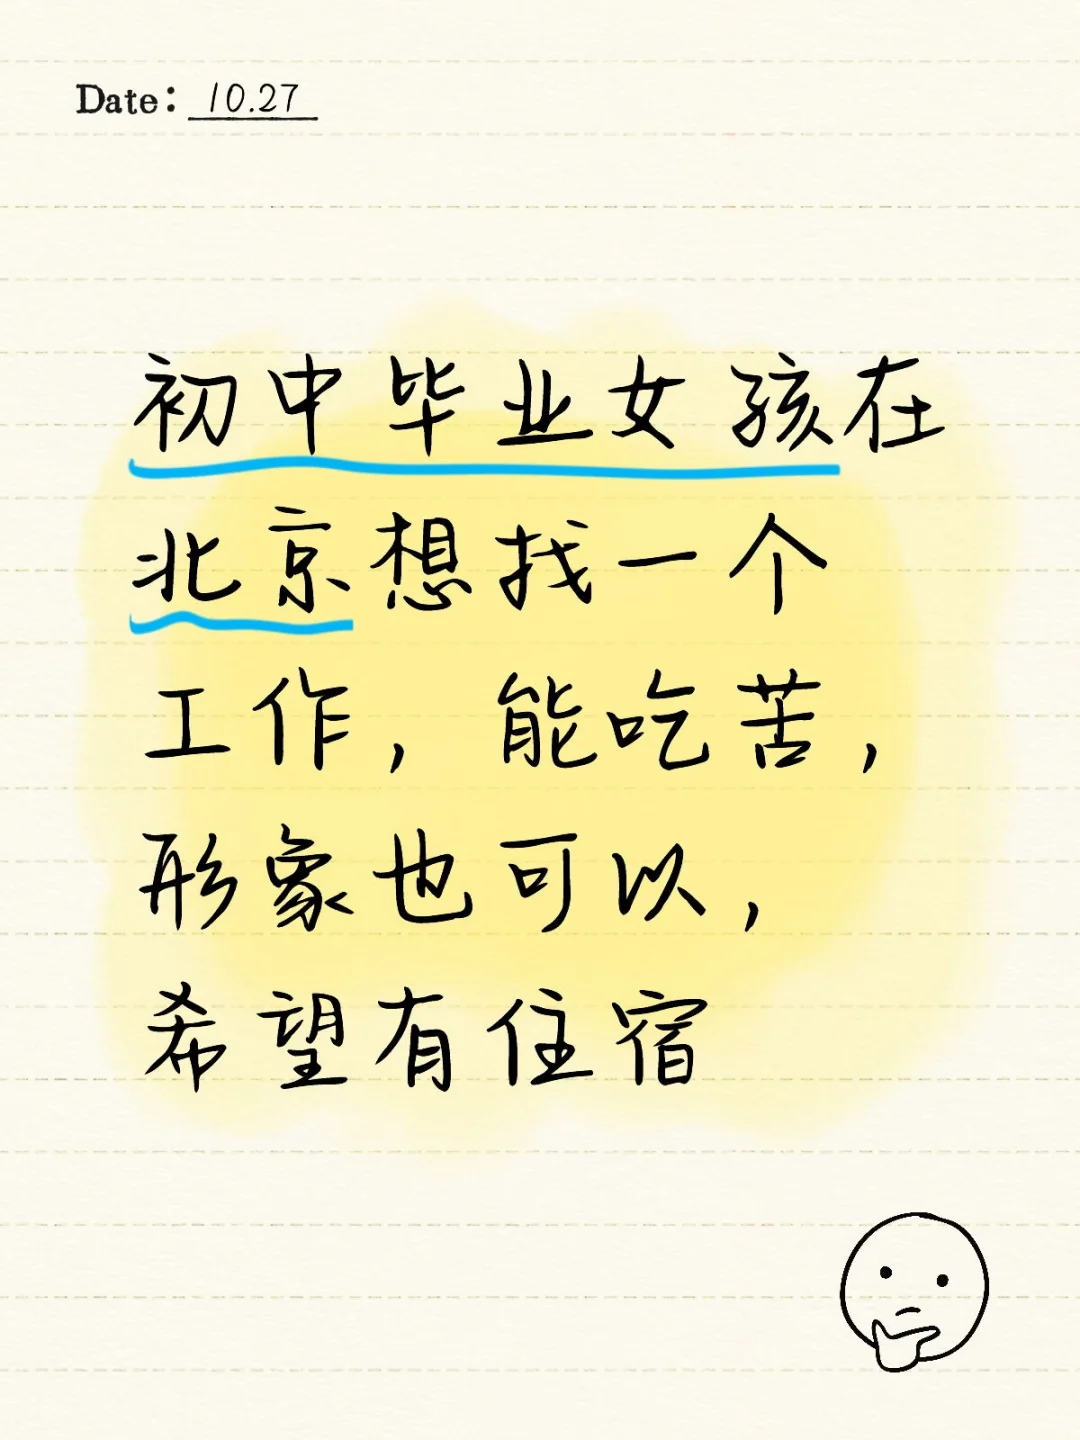 Date: 10.27
初中毕业女孩在
北京想找一个
工作，能吃苦，
形象也可以，
希望有住宿